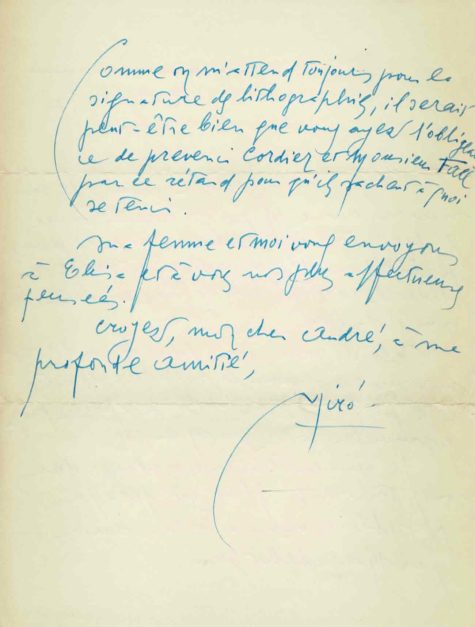 Comme on m'attend toujours pour la
signature des lithographies, il serait
peut-être bien que vous ayez l'obligean
ce de prevenir Cordier et Monsieur Fall
par ce rétard pour qu'ils sachent à quoi
se tenir.
Ma femme et moi vous envoyons
à Elisa et à vous nos plus affectueuses
pensées.
croyez, mon cher André, à ma
profonde amitié,
Miró.